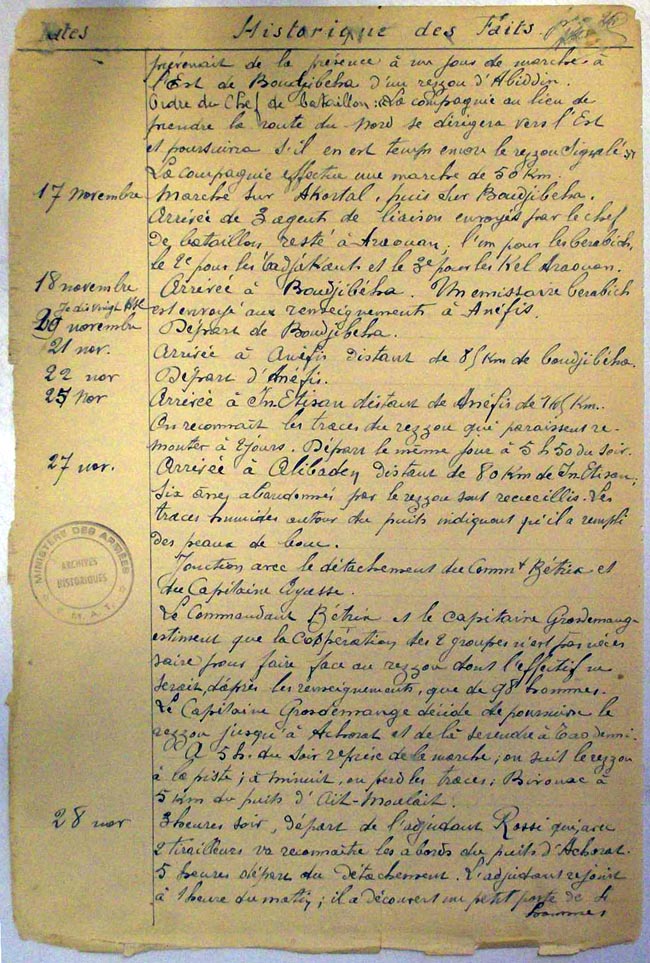 Dates Historique des Faits
prévenait de la présence à un jour de marche à
l'Est de Boudjibéha d'un rezzou d'Abiddin.
Ordre du Chef de bataillon : La compagnie au lieu de
prendre la route du Nord se dirigera vers l'Est
et poursuivra s'il en est temps encore le rezzou signalé
La compagnie effectue une marche de 50 Km.
17 novembre Marche sur Akortal, puis sur Boudjibéha.
Arrivée de 3 agents de liaison envoyés par le chef
de bataillon resté à Araouan, l'un pour les bérabich,
le 2e pour les tadjakants et le 3e pour les Kel Araouan.
18 novembre Arrivée à Boudjibéha. Un émissaire berabich
est envoyé aux renseignements à Anéfis.
Je dis vingt
20 novembre Départ de Boudjibeha.
21 nov. Arrivée à Anéfis distant de 85 Km de boudjibéha.
22 nov Départ d'Anéfis.
25 Nov Arrivée à In Etisan distant de Anéfis de 165 Km.
On reconnait les traces du rezzou qui paraissent re-
monter à 2 jours. Départ le même jour à 5 h 50 du soir.
27 nov. Arrivée à Alibadey distant de 80 Km de In Etisan,
Six ânes abandonnés par le rezzou sont recueillis. Les
traces humides autour du puits indiquent qu'il a rempli
des peaux de bouc.
Jonction avec le détachement du Commt Bétrix et
du Capitaine Cyasse.
Le Commandant Bétrix et le Capitaine Grosdemange
estiment que la Coopération des 2 groupes n'est pas néces
saire pour faire face au rezzou dont l'effectif ne
serait, d'après les renseignements, que de 98 hommes.
Le Capitaine Grosdemange décide de poursuivre le
rezzou jusqu'à Achorat et de là se rendre à Taodenni.
A 5 h. du soir reprise de la marche ; on suit le rezzou
à la piste ; à minuit, on perd les traces ; Bivouac à
5 Km du puits d'Ait-Moulait.
28 nov 3 heures soir, départ de l'adjudant Rossi qui avec
2 tirailleurs va reconnaître les abords du puits d'Achorat.
5 heures départ du détachement. L'adjudant rejoint
à 1 heure du matin ; il a découvert un petit poste de 4
hommes
MINISTERE DES ARMÉES
ARCHIVES
HISTORIQUES